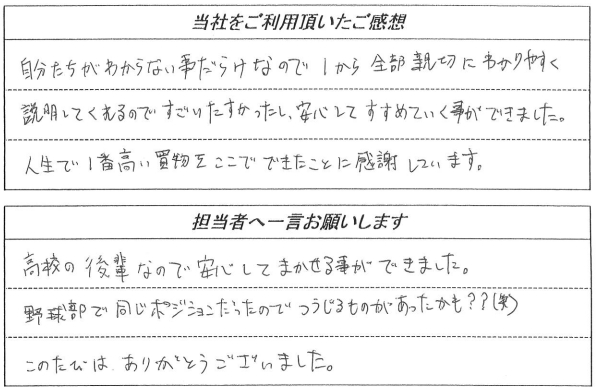 当社をご利用頂いたご感想
自分たちがわからない事だらけなので1から全部親切にわかりやすく
説明してくれるのですごいたすかったし、安心してすすめていく事ができました。
人生で1番高い買物をここでできたことに感謝しています。
担当者へ一言お願いします
高校の後輩なので安心してまかせる事ができました。
野球部で同じポジションだったのでつうじるものがあったかも??(笑)
このたびはありがとうございました。